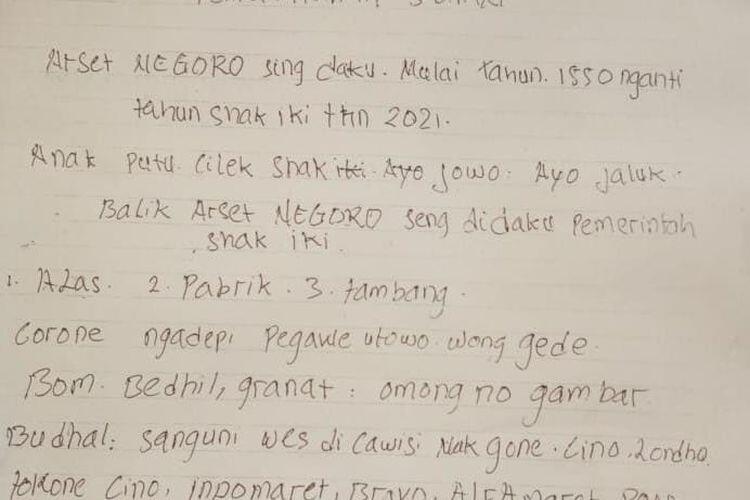 Arset NEGORO sing daku. Mulai tahun. 1550 nganti
tahun snak iki thn 2021.
Anak putu. Cilek snak Ayo Jowo. Ayo jaluk.
Balik Arset NEGORO seng didaku Pemerintah
snak iki.
1. ALas. 2. Pabrik. 3. tambang.
Corone ngadepi Pegawe utowo. wong gede.
Bom. Bedhil, granat: omong no gambar
Budhal: sanguni wes di Cawisi Nak gone. Cino. Londho.
tokone Cino, inpomaret, Bravo, ALFAmaret